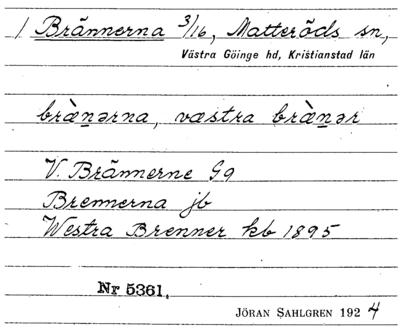 / Brännerna 3/16, Matteröds sn,
Västra Göinge hd, Kristianstad län
bræ̀n̲ərna, væstra bræ̀n̲ər
V. Brännerne G9
Brennerna jb
Westra Brenner kb 1895
Nr 5361.
JÖRAN SAHLGREN 192 4